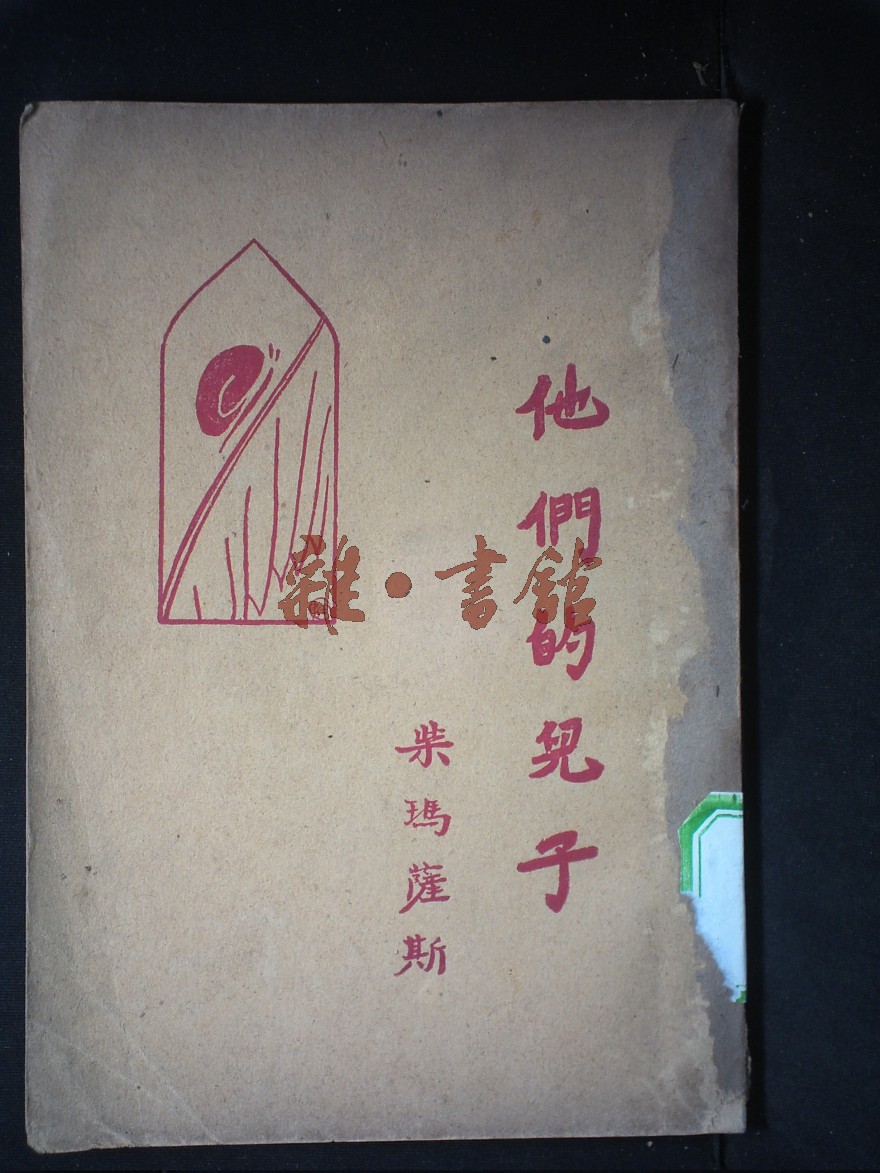 他們的兒子
柴瑪薩斯
雜·書館